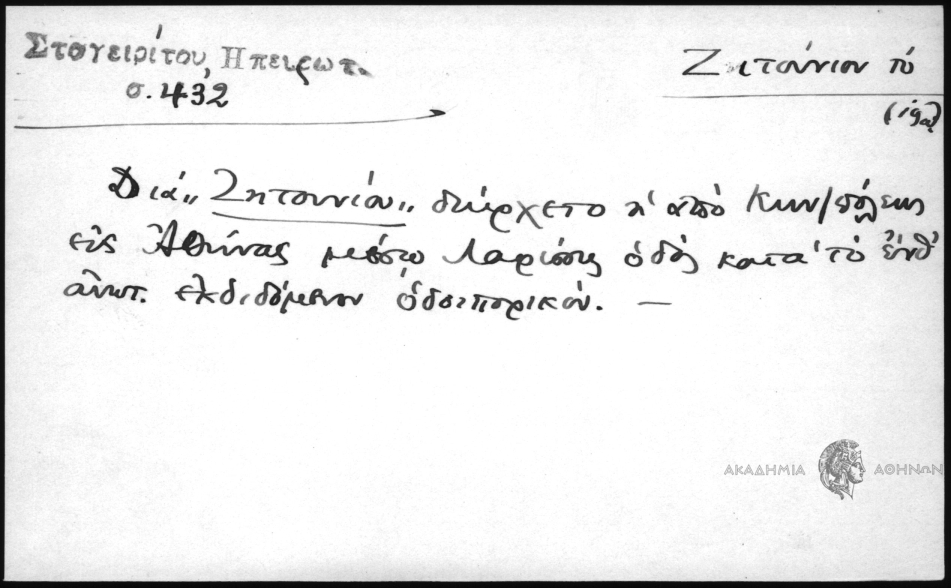 Σταγειρίτου, Ηπειρωτ.
σ. 432
Ζητούνιον τὸ
Διά „Ζητουνίου„ διήρχετο ἡ ἀπὸ Κων/πόλεως
εἰς Ἀθήνας μέσῳ Λαρίσης ὁδὸς κατὰ τὸ ἐνθ'
ἀνωτ. ἐκδιδόμενον ὁδοιπορικόν. —
ΑΚΑΔΗΜΙΑ ΑΘΗΝΩΝ